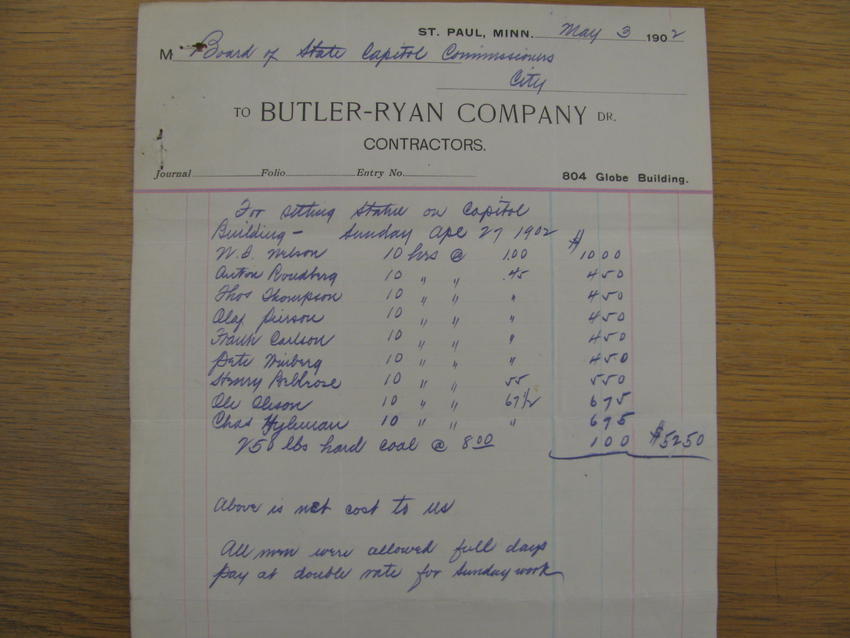 ST. PAUL, MINN. May 3 1902
M Board of State Capitol Commissioners
City
TO BUTLER-RYAN COMPANY DR.
CONTRACTORS.
Journal Folio Entry No. 804 Globe Building.
For setting Statue on Capitol
Building - Sunday Apl 27 1902 $
Nelson 10 hrs @ 1.00 10 00
Anton Roudberg 10 " " .45 4 50
Thos Thompson 10 " " " 4 50
Olaf Pierson 10 " " " 4 50
Frank Carlson 10 " " " 4 50
Pete Winberg 10 " " " 4 50
Henry 10 " " 55 5 50
Ole Oleson 10 " " 67 1/2 6 75
Chas 10 " " " 6 75
250 lbs hard coal @ 8.00 1 00 $52 50
Above is net cost to us
All men were allowed full days
pay at double rate for Sunday work